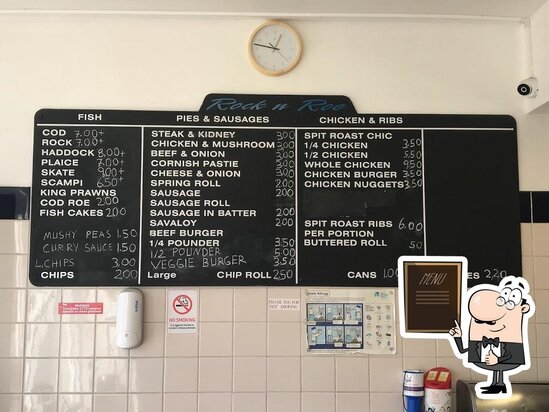 Rock n Roe
FISH
COD 7.00+
ROCK 7.00+
HADDOCK 8.00+
PLAICE 7.00+
SKATE 9.00+
SCAMPI 6.50+
KING PRAWNS
COD ROE 2.00
FISH CAKES 2.00
MUSHY PEAS 1.50
CURRY SAUCE 1.50
L.CHIPS 3.00
CHIPS 2.00
PIES & SAUSAGES
STEAK & KIDNEY 3.00
CHICKEN & MUSHROOM 3.00
BEEF & ONION 3.00
CORNISH PASTIE 3.00
CHEESE & ONION 3.00
SPRING ROLL 2.00
SAUSAGE 2.00
SAUSAGE ROLL
SAUSAGE IN BATTER 2.00
SAVALOY 2.00
BEEF BURGER
1/4 POUNDER 3.50
1/2 POUNDER 5.00
VEGGIE BURGER 3.50
Large CHIP ROLL 2.50
CHICKEN & RIBS
SPIT ROAST CHIC
1/4 CHICKEN 3.50
1/2 CHICKEN 5.50
WHOLE CHICKEN 9.50
CHICKEN BURGER 3.50
CHICKEN NUGGETS 3.50
SPIT ROAST RIBS 6.00
PER PORTION
BUTTERED ROLL 50
CANS 1.00
2.20
MENU
NO SMOKING
THANK YOU FOR
NOT SMOKING